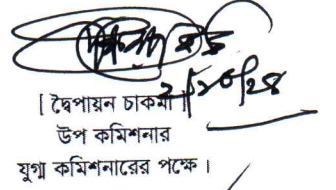 ২/১০/২৪
[ দ্বৈপায়ন চাকমা ]
উপ কমিশনার
যুগ্ম কমিশনারের পক্ষে।